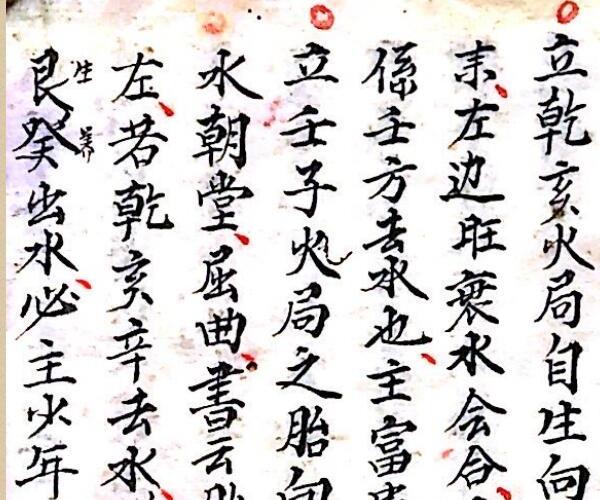 立乾亥火局自生向
耒左边旺衰水会合
係壬方去水也主富
立壬子火局之胎向
水朝堂屈曲書云
左若乾亥辛去水
艮癸出水必主少年
生
养